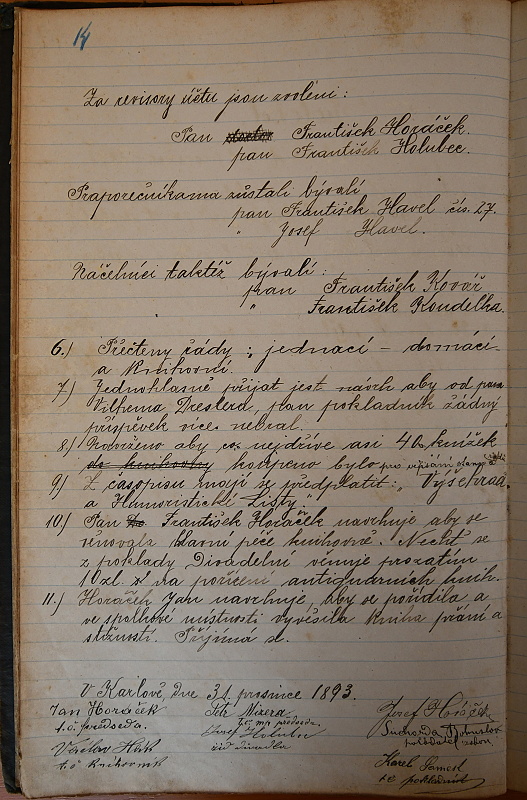 14
Za revisory účtu jsou zvoleni:
Pan František Horáček.
pan František Holubec.
Praporečníkama zůstali bývalí
pan František Havel čís. 27.
" Josef Havel.
Náčelníci taktéž bývalí:
pan František Kovář
" František Koudelka.
6.) Přečteny řády: jednací – domácí
a knihovní.
7.) Jednohlasně přijat jest návrh aby od pana
Vilhema Dreslera, pan pokladník žádný
příspěvek více nebral.
8.) Navrženo aby co nejdříve asi 40 knížek
do knihovny koupeno bylo pro
9.) Z časopisu mají se předplatit: „Vyšehrad"
a Humoristické Listy."
10.) Pan František Horáček navrhuje aby se
věnovala hlavní péče knihovně. Nechť se
z poklady Divadelní věnuje prozatím
10 zl. na pořízení antiquárních knih.
11.) Horáček Jan navrhuje, aby se pořídila a
ve spolkové místnosti vyvěsila kniha přání a
stížností. Přijímá se.
V Karlově, dne 31. prosince 1893.
Jan Horáček
t. č. předseda.
Petr Mizera
t. č. mp. předseda.
Josef Holubec
říd. divadla
Josef
Suchorda Bohuslav
Václav Hak
t. č. knihovník
Karel Samek
t. č. pokladník